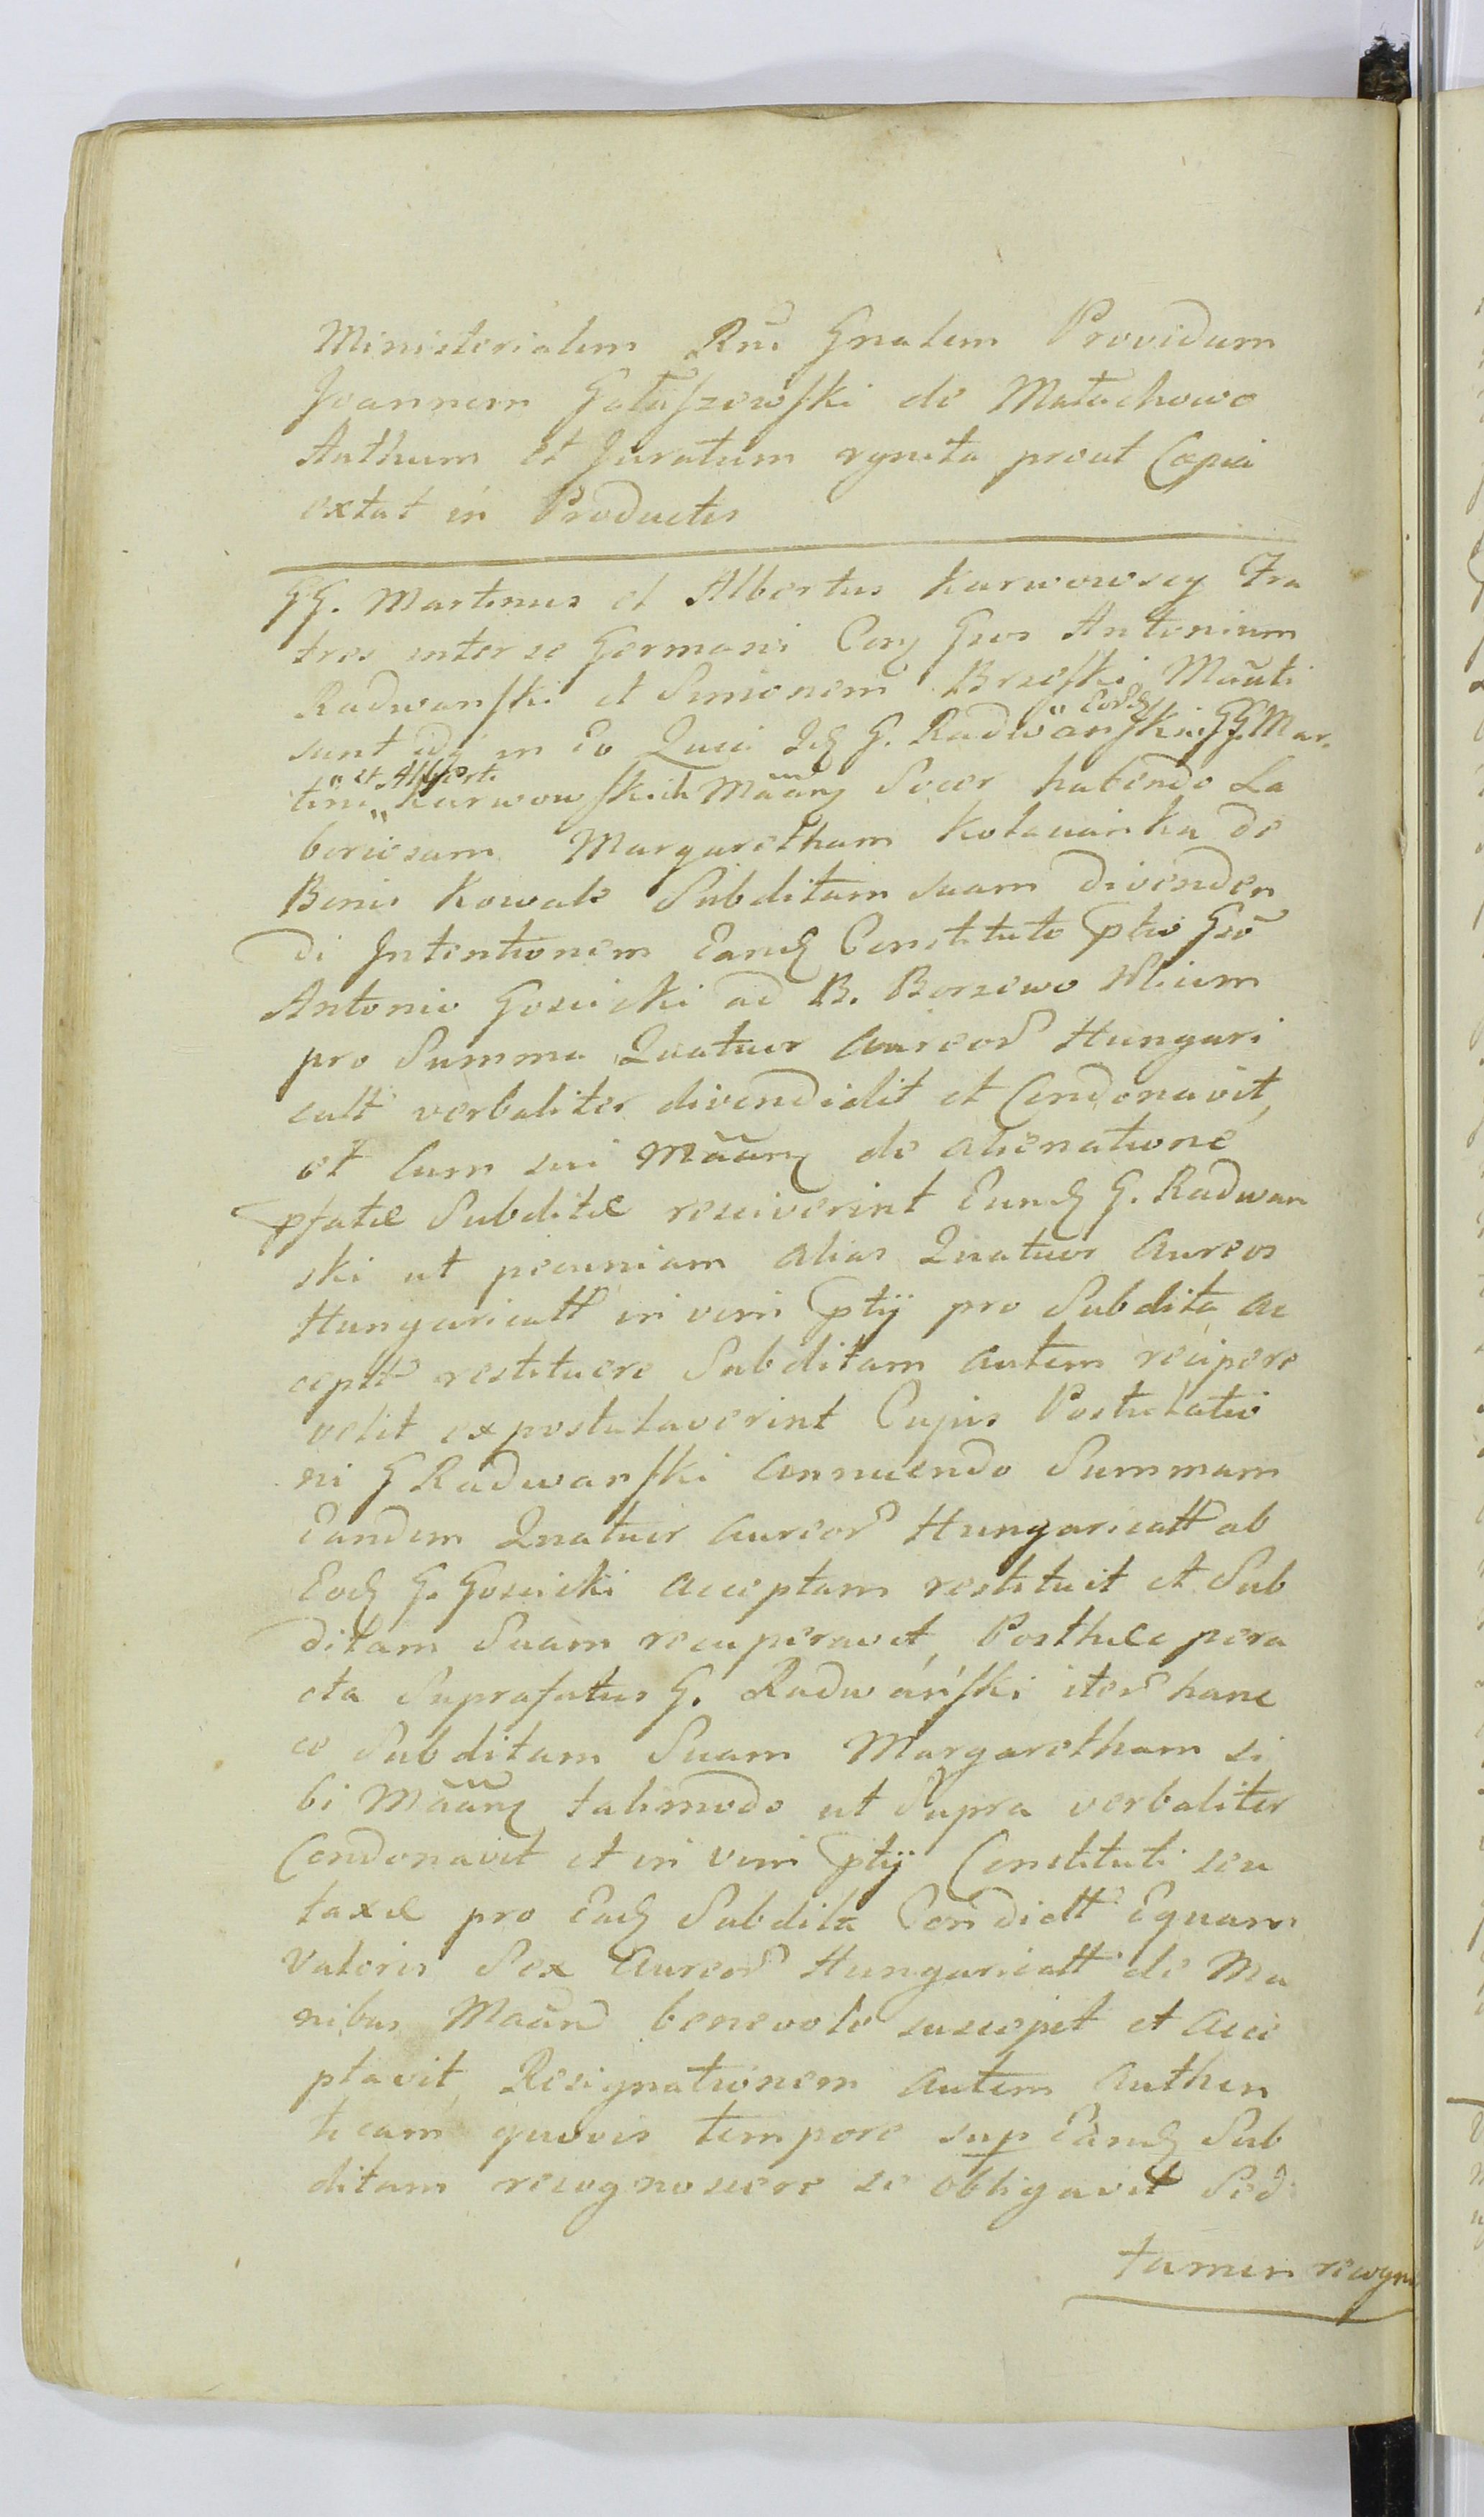 Ministerialem Rni Gnalem Providum
Joannem Gałaszewski de Małachowo
Authum et Juratum rgnita prout Copia
extat in Productis
GG. Martinus et Albertus Karwowscy Fra
tres inter se Germani Corq Gsos Antonium
Radwanski et Simonem Brzeski Mãnti
sunt idq in Eo Quia Idq G. Radwanski Eordq GG. Mar-
tini et Alberti Karwowskich Mããnq Socer habendo La
boriosam Margaretham Kołauanka de
Bonis Kowale Subditam suam divenden
di Intentionem Eandq Constituto ptio Gsõ
Antonio Goscicki ad B. Borzewo Hlium
pro Summa Quatuor Aureor Hungari
calt verbaliter divendidit et Condonavit,
et Cum sui Mããnq de alienatione
pfatæ Subditæ resciverint Eundq G. Radwan
ski ut pecuniam alias Quatuor Aureos
Hungaricalt in vim ptij pro Subdita ac
ceptt restituere Subditam autem recipere
velit expostulaverint Cujus Postulatio
ni G Radwanski Annuendo Summam
Eandem Quatuor Aureor Hungaricalt ab
Eodq G. Goscicki acceptam restituit et Sub
ditam Suam recuperavit, Posthæc pera
cta Suprafatus G. Radwański iter hanc
ce Subditam Suam Margaretham si
bi Mããnq talimodo ut Supra verbaliter
Condonavit et in vim ptij Constituti seu
taxæ pro Eadq Subdita Condictt Equam
Valoris Sex Aureor Hungaricalt de Ma
nibus Maãn benevole suscepit et Acce
ptavit Resignationem autem Authen
ticam quovis tempore sup Eandq Sub
ditam recognoscere se obligavit Sed
tamen recogn